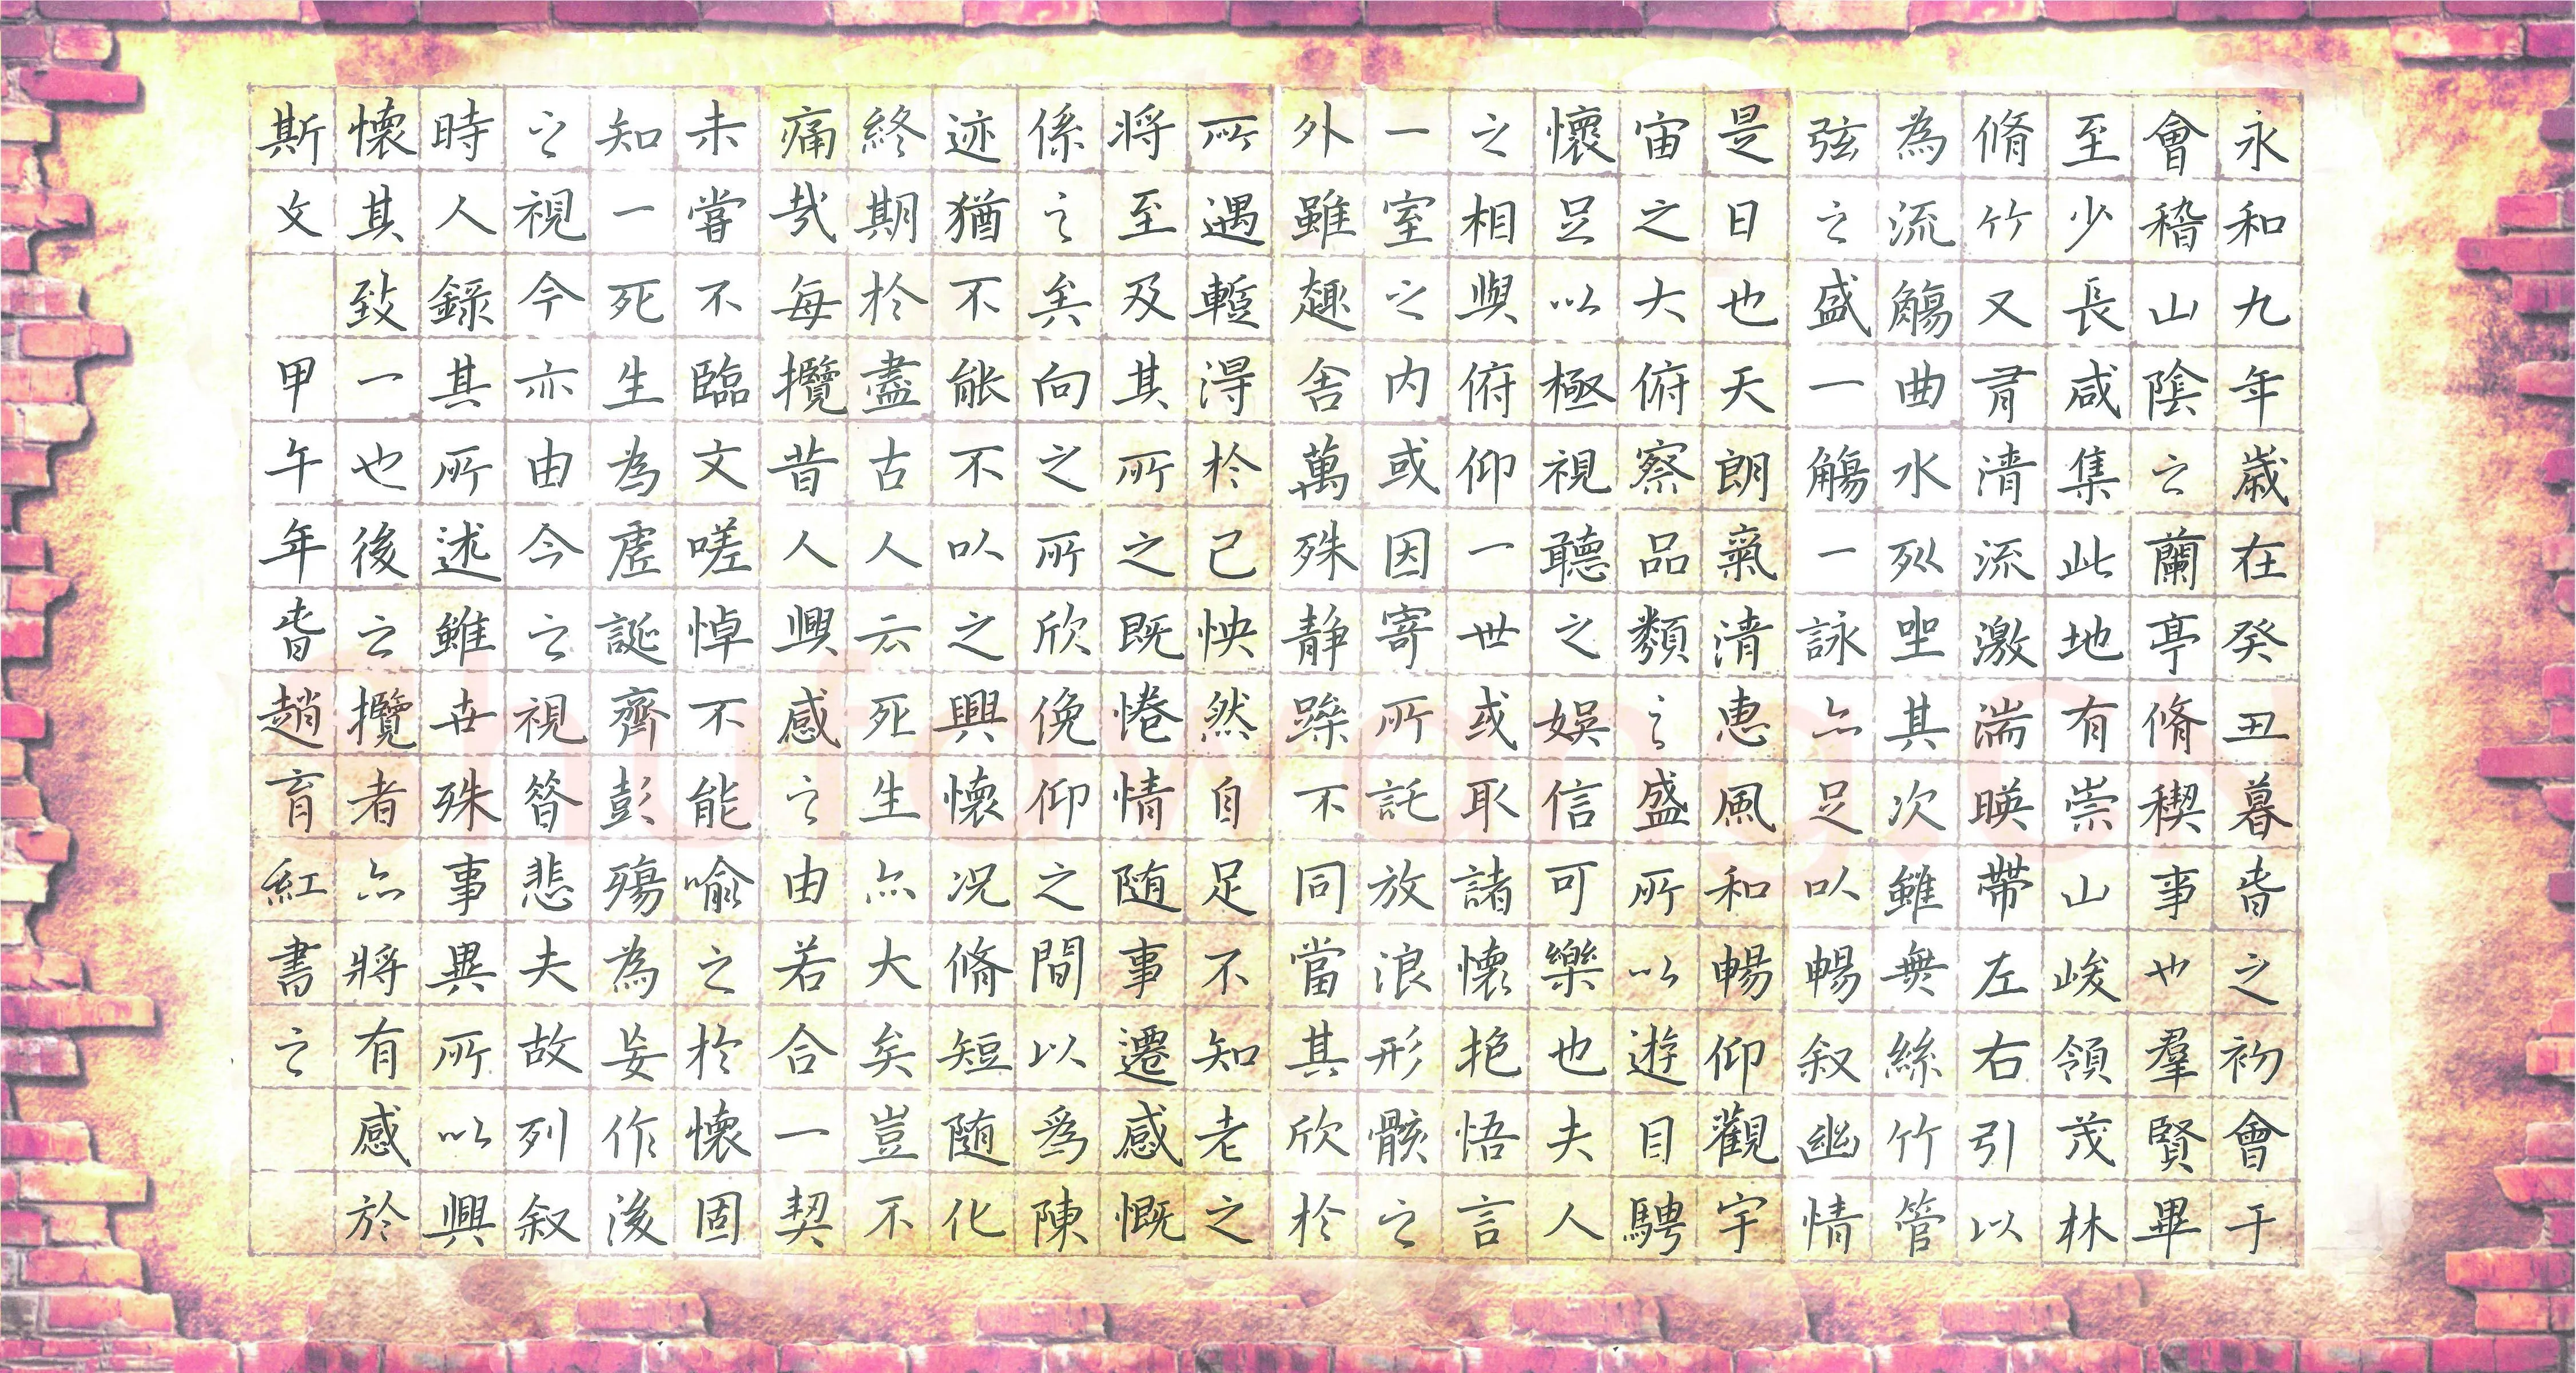 永和九年歲在癸丑暮旾之初會于
會稽山陰之蘭亭脩稧事也羣賢畢
至少長咸集此地有崇山峻領茂林
脩竹又有清流激湍暎帶左右引以
為流觴曲水列坐其次雖無絲竹管
弦之盛一觴一詠亦足以暢叙幽情
是日也天朗氣清惠風和暢仰觀宇
宙之大俯察品類之盛所以遊目騁
懷足以極視聽之娛信可樂也夫人
之相與俯仰一世或取諸懷抱悟言
一室之内或因寄所託放浪形骸之
外雖趣舍萬殊静躁不同當其欣於
所遇蹔得於己怏然自足不知老之
將至及其所之既惓情随事遷感慨
係之矣向之所欣俛仰之間以為陳
迹猶不能不以之興懷况脩短随化
終期於盡古人云死生亦大矣豈不
痛哉每攬昔人興感之由若合一契
未嘗不臨文嗟悼不能喻之於懷固
知一死生為虛誕齊彭殤為妄作後
之視今亦由今之視昔悲夫故列叙
時人錄其所述雖世殊事異所以興
懷其致一也後之攬者亦將有感於
斯文 甲午年旾趙育紅書之
shufawang.cn